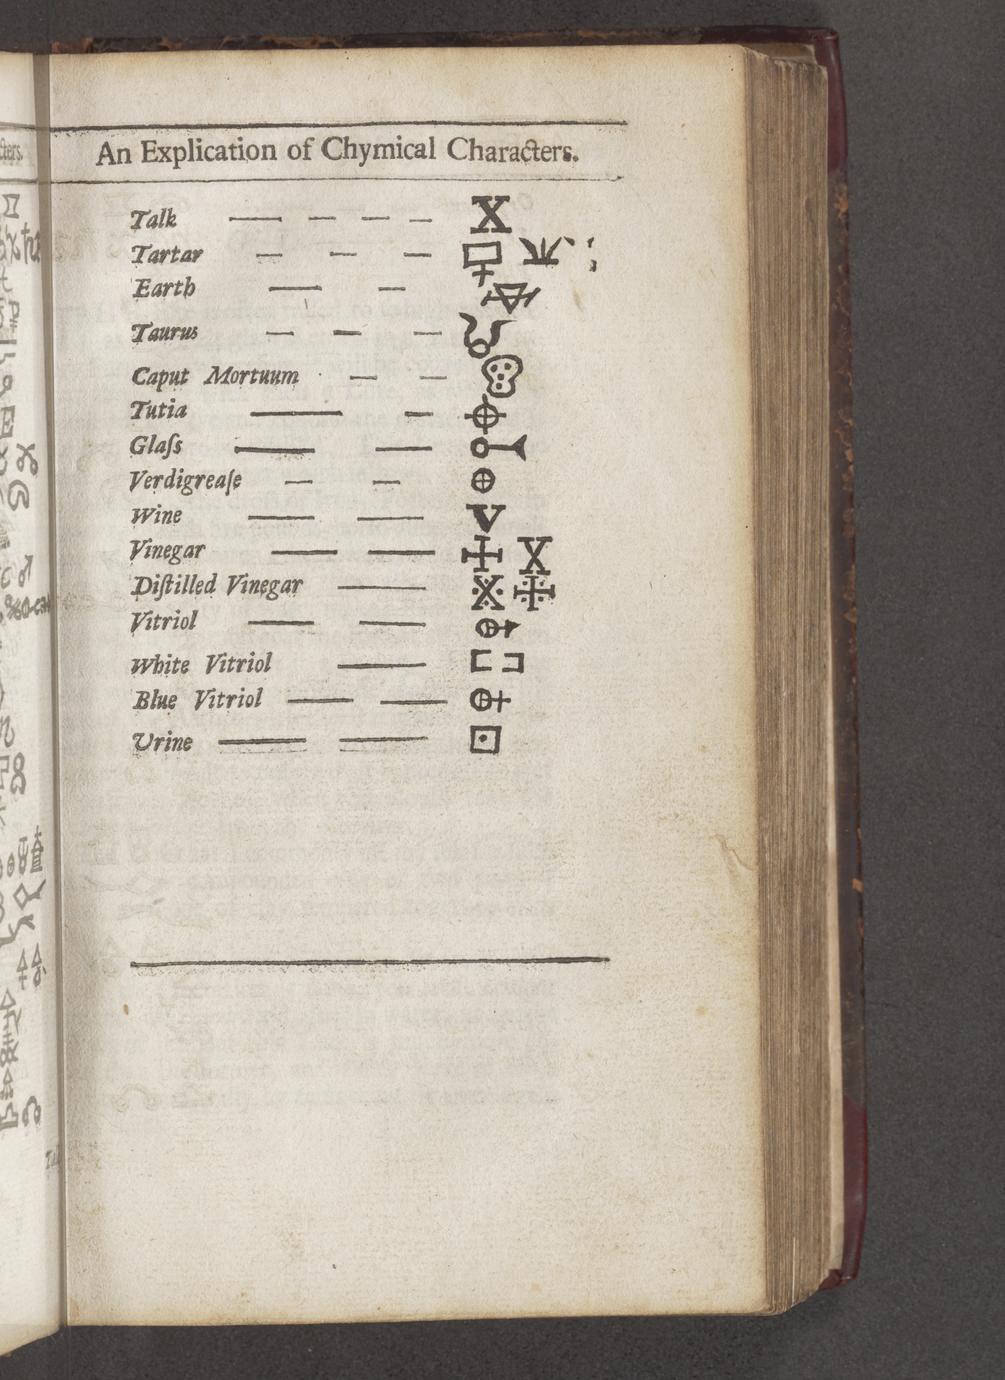 An Explication of Chymical Characters.
Talk — — — — X
Tartar — — —
Earth — —
Taurus — — —
Caput Mortuum — —
Tutia — —
Glaſs — —
Verdigreaſe — —
Wine — — V
Vinegar — — X
Diſtilled Vinegar —
Vitriol — —
White Vitriol —
Blue Vitriol — —
Urine — —